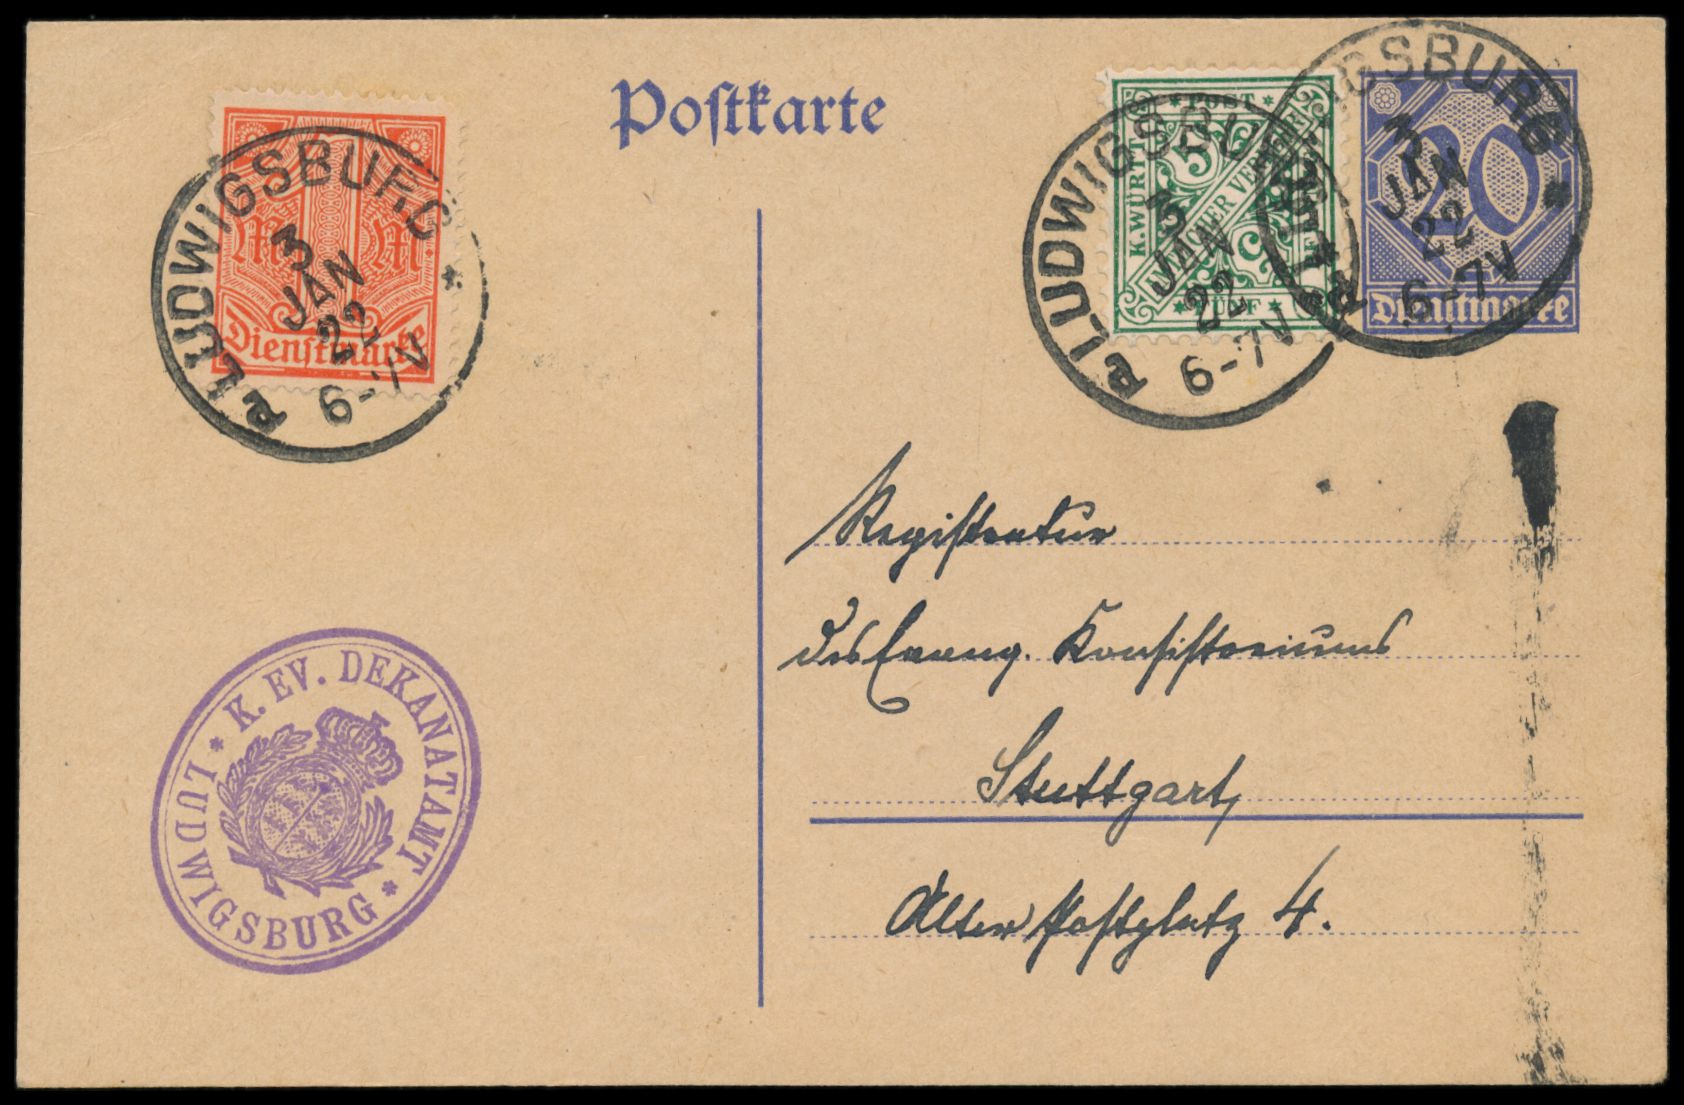 Postkarte
1
M M
Dienstmarke
LUDWIGSBURG
3
JAN
22
6-7V
POST
K.WÜRTT.
5
IMMER VER
5
FÜNF
LUDWIGSBURG
3
JAN
22
6-7V
20
Dienstmarke
LUDWIGSBURG
3
JAN
22
6-7V
Registratur
des Evang. Konsistoriums
Stuttgart,
Alter Postplatz 4.
K. EV. DEKANATAMT
LUDWIGSBURG